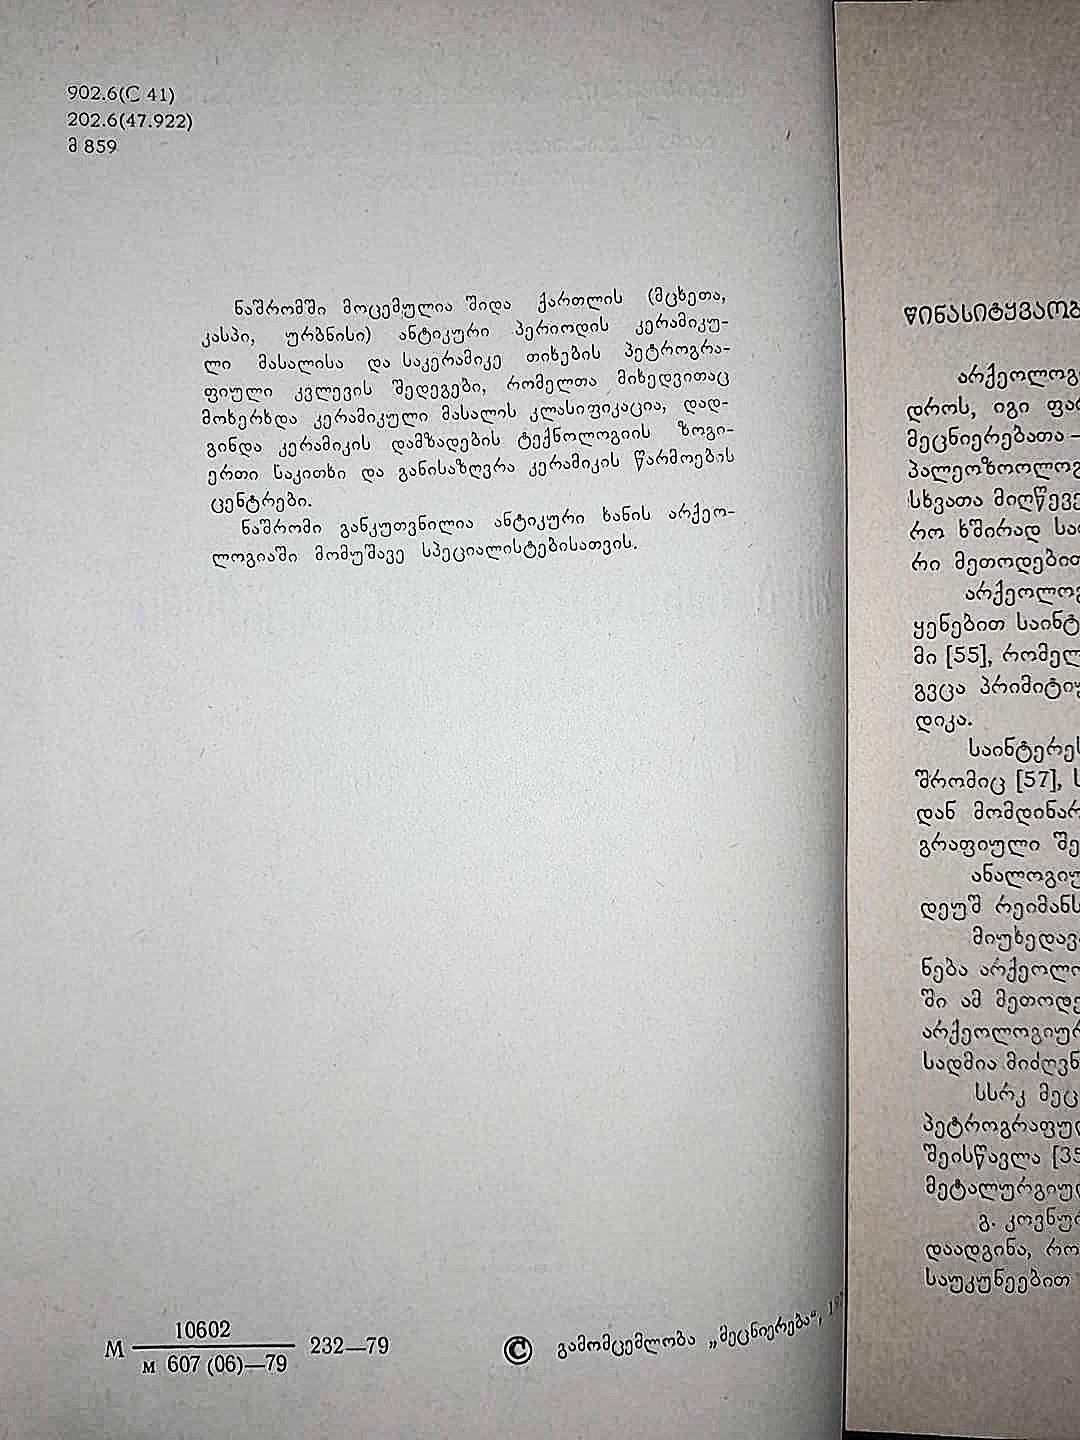 902.6(С 41)
202.6(47.922)
მ 859
ნაშრომში მოცემულია შიდა ქართლის (მცხეთა,
კასპი, ურბნისი) ანტიკური პერიოდის კერამიკუ-
ლი მასალისა და საკერამიკე თიხების პეტროგრა-
ფიული კვლევის შედეგები, რომელთა მიხედვითაც
მოხერხდა კერამიკული მასალის კლასიფიკაცია, დად-
გინდა კერამიკის დამზადების ტექნოლოგიის ზოგი-
ერთი საკითხი და განისაზღვრა კერამიკის წარმოების
ცენტრები.
ნაშრომი განკუთვნილია ანტიკური ხანის არქეო-
ლოგიაში მომუშავე სპეციალისტებისათვის.
М 10602
м 607 (06)—79 232—79
© გამომცემლობა „მეცნიერება“,
წინასიტყვაობ
არქეოლოგ
დროს, იგი ფარ
მეცნიერებათა —
პალეოზოოლოგ
სხვათა მიღწევე
რო ხშირად სა
რი მეთოდებით
არქეოლოგ
ყენებით საინტ
მი [55], რომელ
გვცა პრიმიტიუ
დიკა.
საინტერეს
შრომიც [57], ს
დან მომდინარ
გრაფიული შე
ანალოგიუ
დეუშ რეიმანს
მიუხედავ
ნება არქეოლო
ში ამ მეთოდე
არქეოლოგიურ
სადმია მიძღვნ
სსრკ მეც
პეტროგრაფულ
შეისწავლა [35
მეტალურგიულ
გ. კოვნურ
დაადგინა, რო
საუკუნეებით